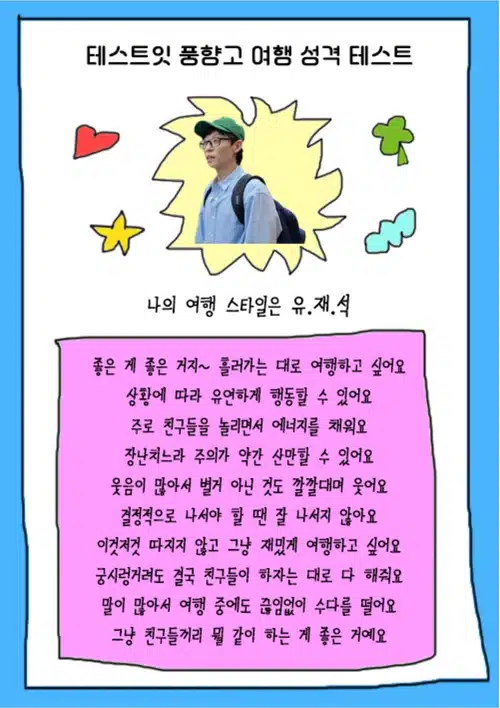 테스트잇 풍향고 여행 성격 테스트
나의 여행 스타일은 유.재.석
좋은 게 좋은 거지~ 흘러가는 대로 여행하고 싶어요
상황에 따라 유연하게 행동할 수 있어요
주로 친구들을 놀리면서 에너지를 채워요
장난치느라 주의가 약간 산만할 수 있어요
웃음이 많아서 별거 아닌 것도 깔깔대며 웃어요
결정적으로 나서야 할 땐 잘 나서지 않아요
이것저것 따지지 않고 그냥 재밌게 여행하고 싶어요
궁시렁거려도 결국 친구들이 하자는 대로 다 해줘요
말이 많아서 여행 중에도 끊임없이 수다를 떨어요
그냥 친구들끼리 뭘 같이 하는 게 좋은 거예요